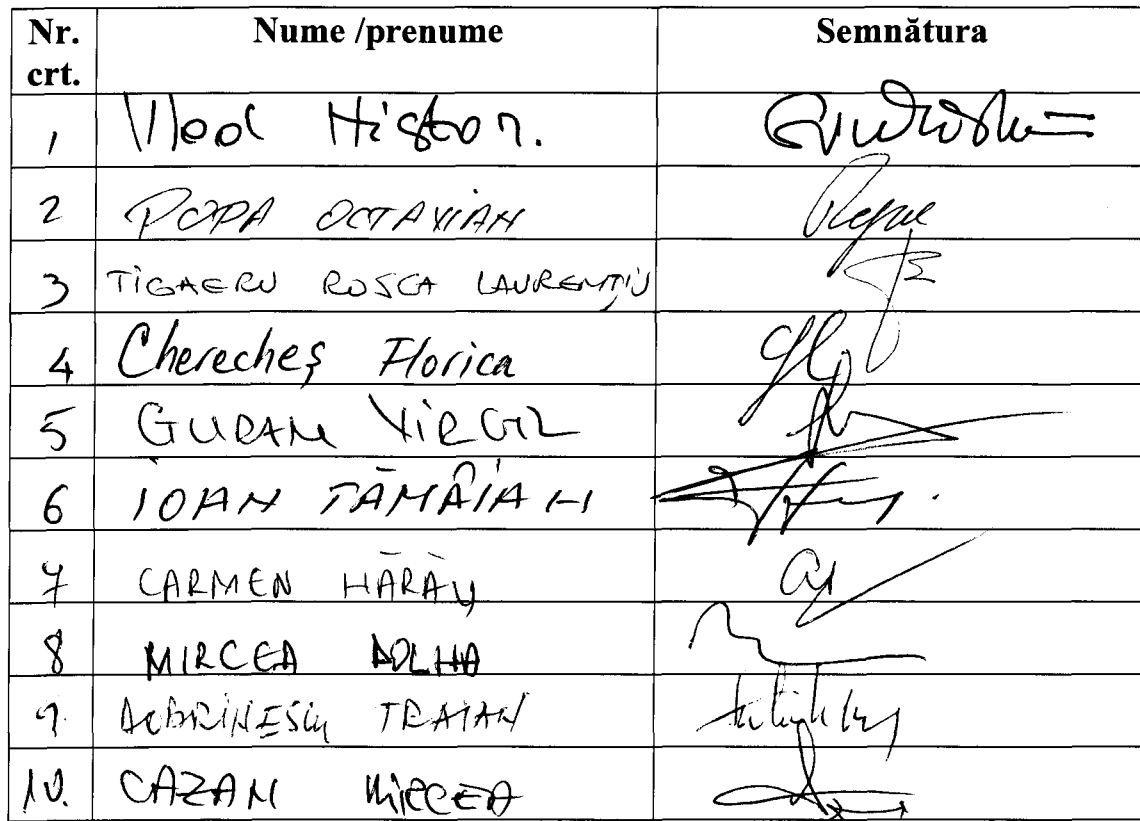 Nr. crt. Nume /prenume Semnătura
1 Vlad Nistor.
2 POPA OCTAVIAN
3 TIGAERU ROSCA LAURENȚIU
4 Cherecheș Florica
5 GURAN VIRGIL
6 IOAN TĂMÂIAN
7 CARMEN HĂRĂU
8 MIRCEA DOLHA
9. DOBRINESCU TRAIAN
10. CAZAN MIRCEA